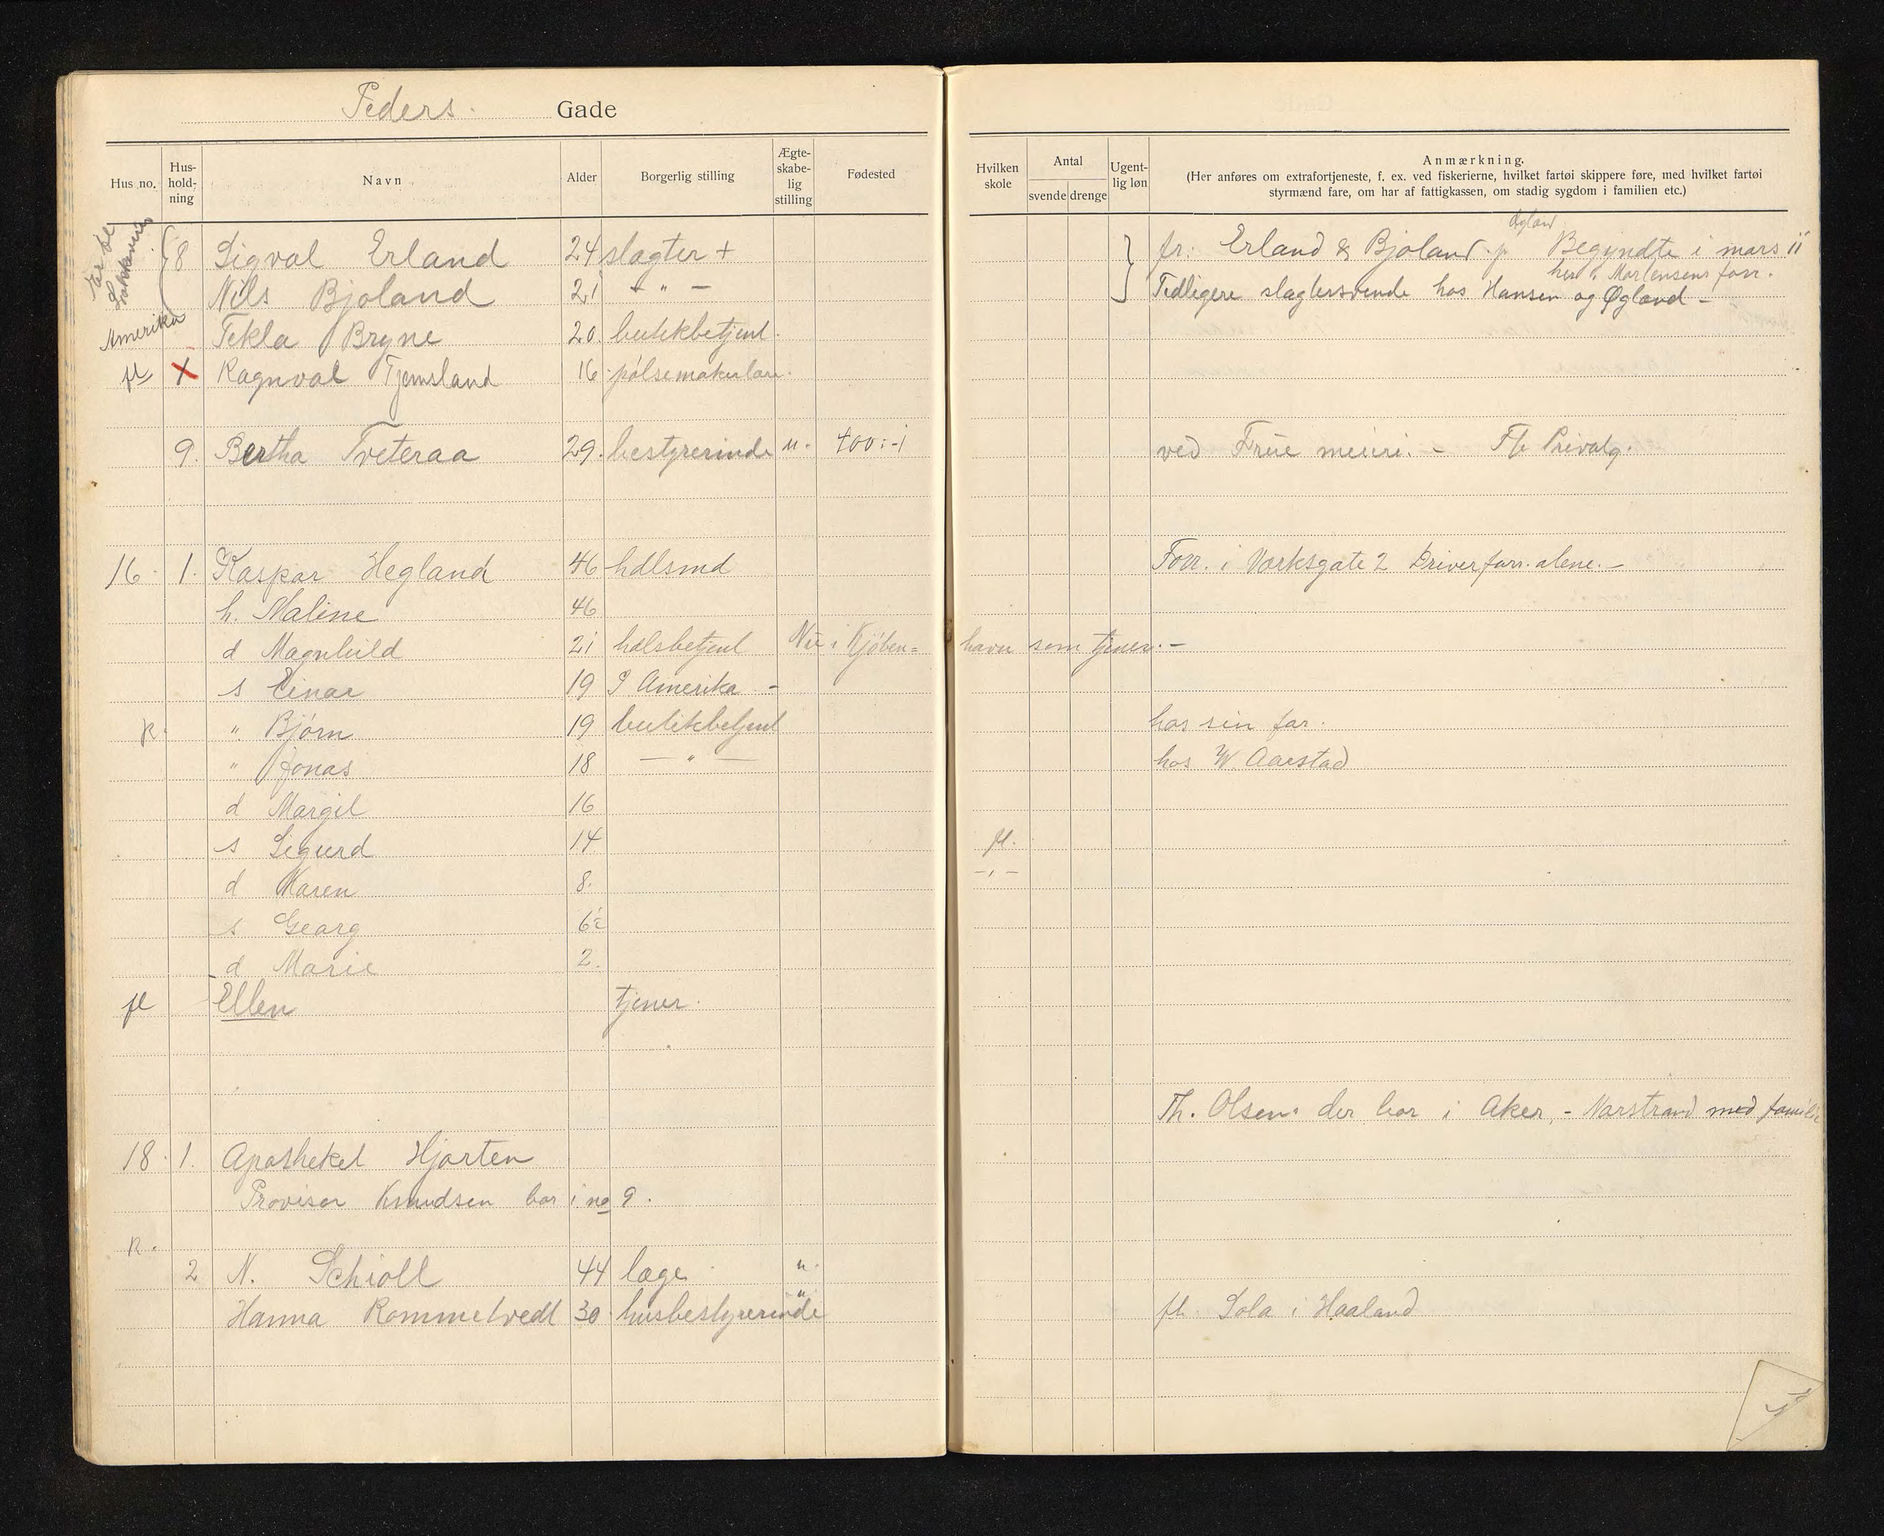 Peders. Gade
Hus no. Hus-hold-ning Navn Alder Borgerlig stilling Ægte-skabe-lig stilling Fødested Hvilken skole Antal svende drenge Ugent-lig løn Anmærkning.
(Her anføres om extrafortjeneste, f. ex. ved fiskerierne, hvilket fartøi skippere føre, med hvilket fartøi
styrmænd fare, om har af fattigkassen, om stadig sygdom i familien etc.)
8 Sigval Erland 24 slagter + fr: Erland & Bjoland. Øgland Begyndte i mars 11
Nils Bjoland 21 - " - Tidligere slagtersvende hos Hansen og Øgland - Mortensens forr.
Amerika Tekla Bryne 20. butikbetjent.
fl X Ragnval Tjemsland 16 pølsemakerlære.
9. Bertha Tveteraa 29. bestyrerinde u. 400:-i ved Frue meieri. - Fh Privatg.
16. 1. Kaspar Hegland 46 hdlsmd Forr. i Værksgate 2 Driver forr. alene. -
h. Maline 46
d Magnhild 21 hdlsbetjent Nu i Kjøben= havn som tjener. -
s Einar 19 I Amerika -
R. " Bjørn 19 butikbetjent hos sin far.
" Jonas 18 - " - hos W. Aarstad
d Margit 16
s Sigurd 14 fl.
d Karen 8. - , -
s Georg 6½
d Marie 2.
fl Ellen tjener.
Th. Olsen. der bor i Aker, - Norstrand med familie
18. 1. Apotheket Hjorten
Provisor Knudsen bor i no 9.
R.
2 N. Schiøll 44 læge u.
Hanna Rommetvedt 30. husbestyrerinde " fh. Sola i Haaland